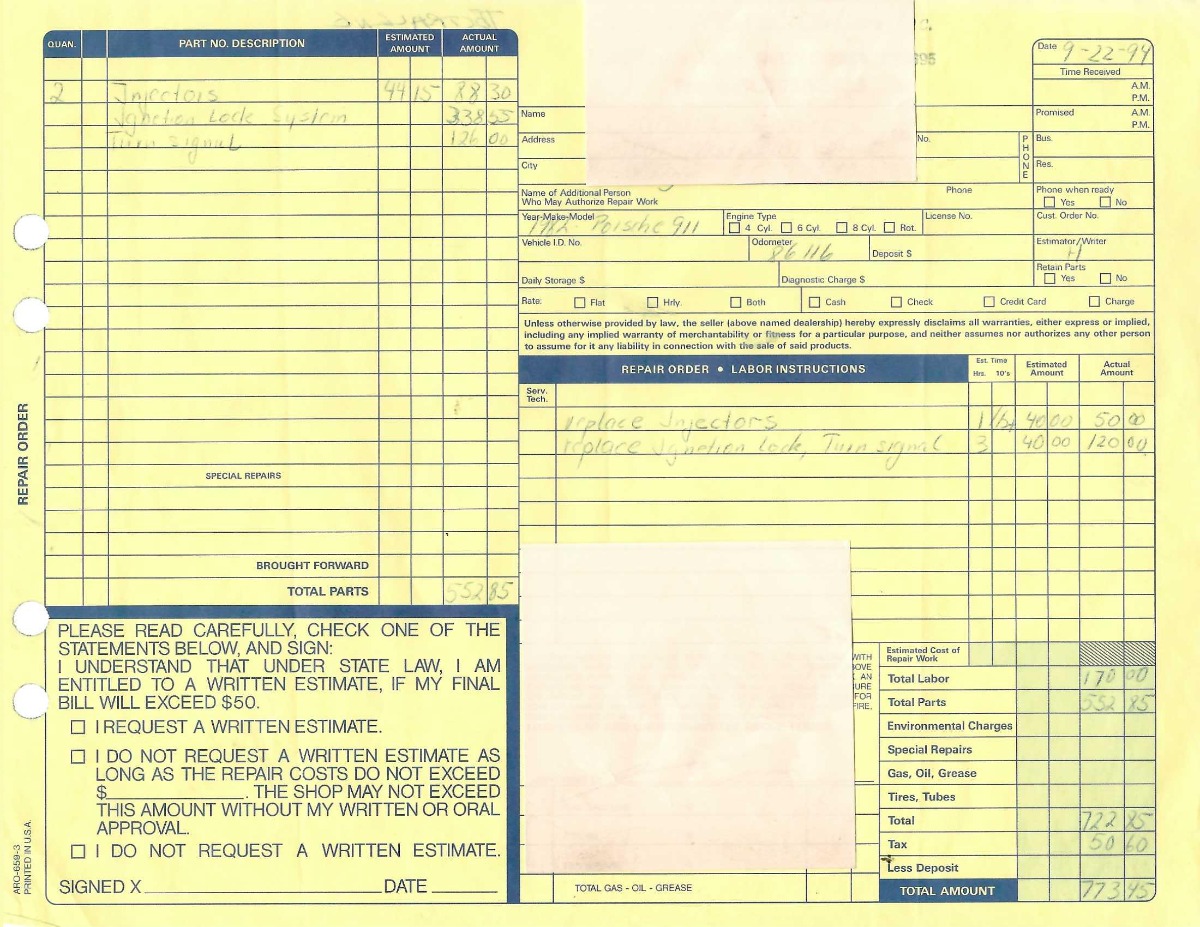 QUAN. PART NO. DESCRIPTION ESTIMATED AMOUNT ACTUAL AMOUNT
2 Injectors 44 15 88 30
Ignetion Lock System 338 55
Turn signal 126 00
SPECIAL REPAIRS
BROUGHT FORWARD
TOTAL PARTS 552 85
REPAIR ORDER
ARO-659-3
PRINTED IN U.S.A.
PLEASE READ CAREFULLY, CHECK ONE OF THE
STATEMENTS BELOW, AND SIGN:
I UNDERSTAND THAT UNDER STATE LAW, I AM
ENTITLED TO A WRITTEN ESTIMATE, IF MY FINAL
BILL WILL EXCEED $50.
I REQUEST A WRITTEN ESTIMATE.
I DO NOT REQUEST A WRITTEN ESTIMATE AS
LONG AS THE REPAIR COSTS DO NOT EXCEED
$ . THE SHOP MAY NOT EXCEED
THIS AMOUNT WITHOUT MY WRITTEN OR ORAL
APPROVAL.
I DO NOT REQUEST A WRITTEN ESTIMATE.
SIGNED X DATE
Date 9-22-94
Time Received
A.M.
P.M.
Name Promised A.M.
P.M.
Address No. PHONE Bus.
City Res.
Name of Additional Person Phone Phone when ready
Who May Authorize Repair Work Yes No
Year-Make-Model 1982 Porsche 911 Engine Type 4 Cyl. 6 Cyl. 8 Cyl. Rot. License No. Cust. Order No.
Vehicle I.D. No. Odometer 86116 Deposit $ Estimator/Writer H
Retain Parts
Daily Storage $ Diagnostic Charge $ Yes No
Rate: Flat Hrly. Both Cash Check Credit Card Charge
Unless otherwise provided by law, the seller (above named dealership) hereby expressly disclaims all warranties, either express or implied,
including any implied warranty of merchantability or fitness for a particular purpose, and neither assumes nor authorizes any other person
to assume for it any liability in connection with the sale of said products.
REPAIR ORDER • LABOR INSTRUCTIONS Est. Time Hrs. 10's Estimated Amount Actual Amount
Serv. Tech.
replace Injectors 1 40 00 50 00
replace Ignetion Lock, Turn signal 3 40 00 120 00
WITH
AN
FOR
FIRE,
Estimated Cost of
Repair Work
Total Labor 170 00
Total Parts 552 85
Environmental Charges
Special Repairs
Gas, Oil, Grease
Tires, Tubes
Total 722 85
Tax 50 60
Less Deposit
TOTAL GAS - OIL - GREASE
TOTAL AMOUNT 773 45